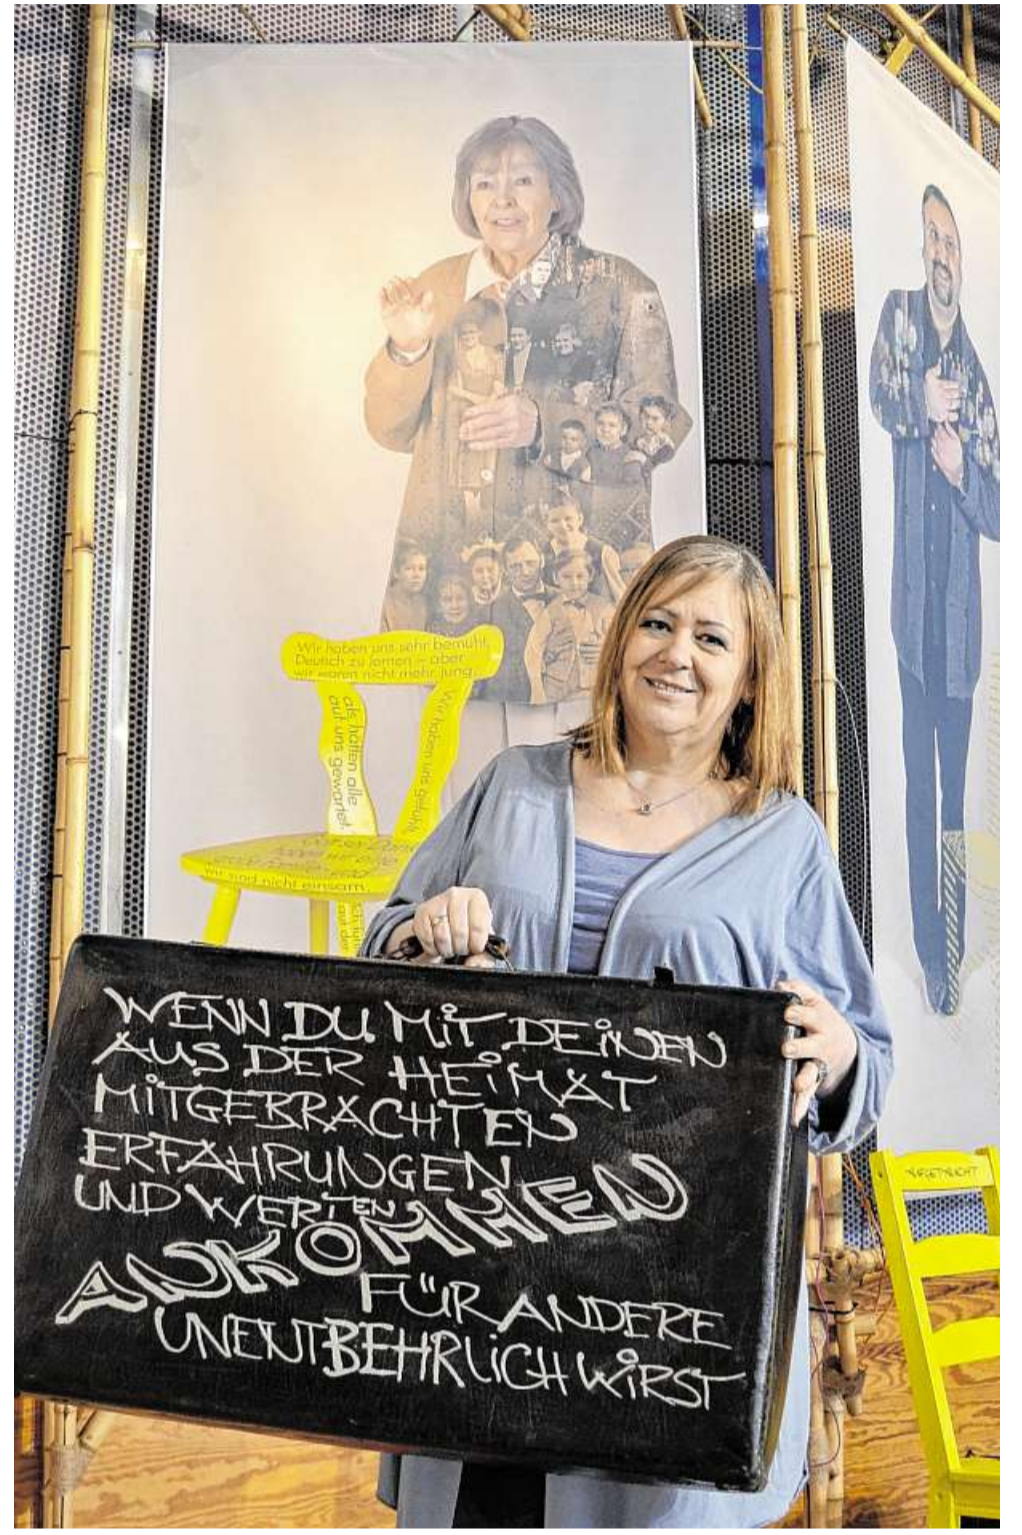 Wir haben uns sehr bemüht,
Deutsch zu lernen – aber
wir waren nicht mehr jung...
als hätten alle
auf uns gewartet.
Wir haben uns gefühlt,
wir sind nicht einsam.
WENN DU MIT DEINEN
AUS DER HEIMAT
MITGEBRACHTEN
ERFAHRUNGEN
UND WERTEN
ANKOMMEN
FÜR ANDERE
UNENTBEHRLICH WIRST